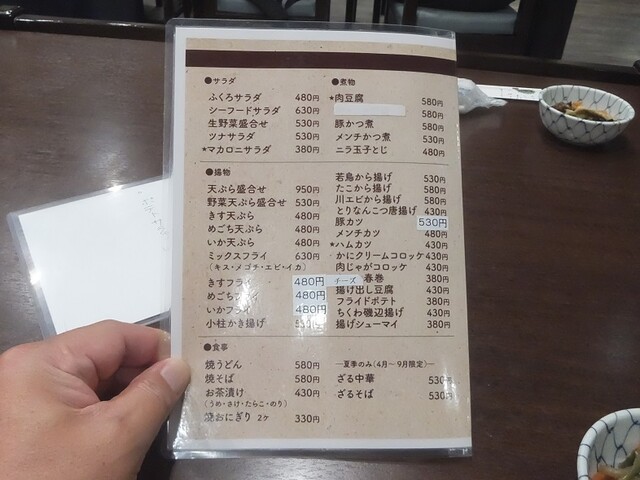 ●サラダ
ふくろサラダ 480円
シーフードサラダ 630円
生野菜盛合せ 530円
ツナサラダ 530円
★マカロニサラダ 380円
●煮物
★肉豆腐 580円
580円
豚かつ煮 580円
メンチかつ煮 530円
ニラ玉子とじ 480円
●揚物
天ぷら盛合せ 950円
野菜天ぷら盛合せ 530円
きす天ぷら 480円
めごち天ぷら 480円
いか天ぷら 480円
ミックスフライ 630円
(キス・メゴチ・エビ・イカ)
きすフライ 480円
めごちフライ 480円
いかフライ 480円
小柱かき揚げ 530円
若鳥から揚げ 530円
たこから揚げ 580円
川エビから揚げ 580円
とりなんこつ唐揚げ 430円
豚カツ 530円
メンチカツ 480円
★ハムカツ 430円
かにクリームコロッケ 430円
肉じゃがコロッケ 430円
チーズ春巻 380円
揚げ出し豆腐 430円
フライドポテト 380円
ちくわ磯辺揚げ 430円
揚げシューマイ 380円
●食事
焼うどん 580円
焼そば 580円
お茶漬け 430円
(うめ・さけ・たらこ・のり)
焼おにぎり 2ケ 330円
―夏季のみ(4月〜9月限定)―
ざる中華 530円
ざるそば 530円